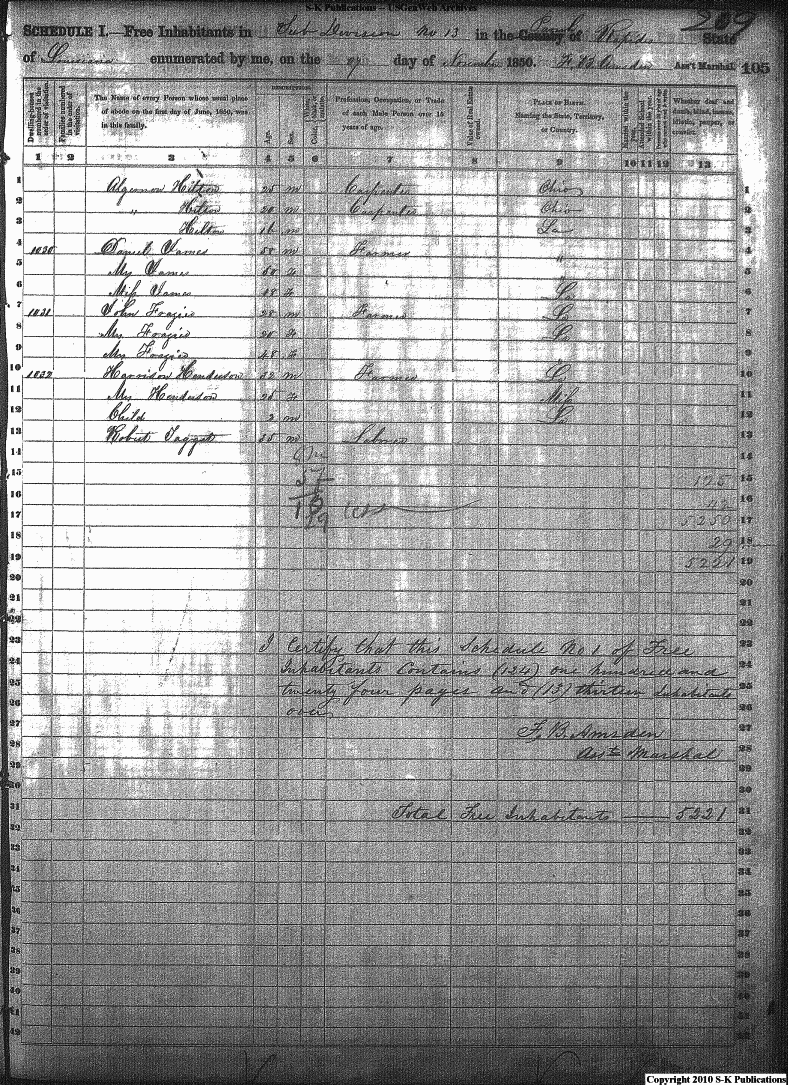 S-K Publications – USGenWeb Archives
209
SCHEDULE I.—Free Inhabitants in Sub Division No 13 in the County of Parish Rapides State
of Louisiana enumerated by me, on the day of November 1850. F. B. Amsden Ass't Marshal. 105
Dwelling-houses numbered in the order of visitation.
Families numbered in the order of visitation.
The Name of every Person whose usual place of abode on the first day of June, 1850, was in this family.
DESCRIPTION.
Age.
Sex.
Color, White, black or mulatto.
Profession, Occupation, or Trade of each Male Person over 15 years of age.
Value of Real Estate owned.
PLACE OF BIRTH. Naming the State, Territory, or Country.
Married within the year.
Attended School within the year.
Whether deaf and dumb, blind, insane, idiotic, pauper, or convict.
1 2 3 4 5 6 7 8 9 10 11 12 13
1 Algernon Hilton 25 m Carpenter Ohio 1
2 " Hilton 20 m Carpenter Ohio 2
3 Hilton 16 m La 3
4 1030 Daniel James 58 m Farmer " 4
5 Mrs James 50 f " 5
6 Miss James 18 f La 6
7 1031 John Frazier 28 m Farmer La 7
8 Mrs Frazier 20 f La 8
9 Mrs Frazier 48 f 9
10 1032 Harrison Henderson 32 m Farmer La 10
11 Mrs Henderson 25 f Miss 11
12 Child 2 m La 12
13 Robert Taggart 35 m Laborer 13
14 14
15 125 15
16 42 16
17 5250 17
18 29 18
19 5221 19
20 20
21 21
22 22
23 I Certify that this Schedule No 1 of Free 23
24 Inhabitants Contains (124) one hundred and 24
25 twenty four pages and (13) thirteen Inhabitants 25
26 over 26
27 F. B. Amsden 27
28 Asst Marshal 28
29 29
30 30
31 Total Free Inhabitants — 5221 31
32 32
33 33
34 34
35 35
36 36
37 37
38 38
39 39
40 40
41 41
42 42
Copyright 2010 S-K Publications